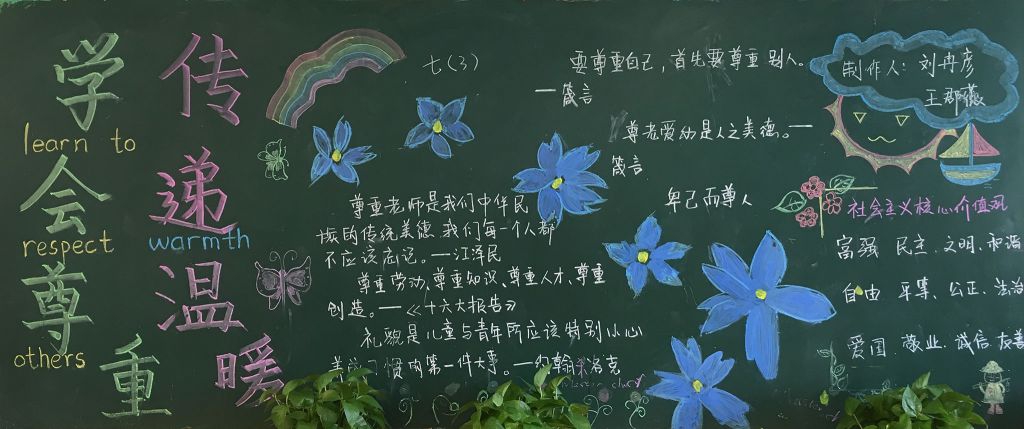 学会尊重
learn to
respect
others
传递温暖
warmth
七（3）
要尊重自己，首先要尊重别人。
——箴言
尊老爱幼是人之美德。——
箴言
卑己而尊人
尊重老师是我们中华民
族的传统美德，我们每一个人都
不应该忘记。——江泽民
尊重劳动、尊重知识、尊重人才、尊重
创造。——《十六大报告》
礼貌是儿童与青年所应该特别小心
的第一件大事。——约翰·洛克
制作人：刘冉彦
王郡薇
社会主义核心价值观
富强 民主、文明、和谐
自由 平等、公正、法治
爱国、敬业、诚信 友善